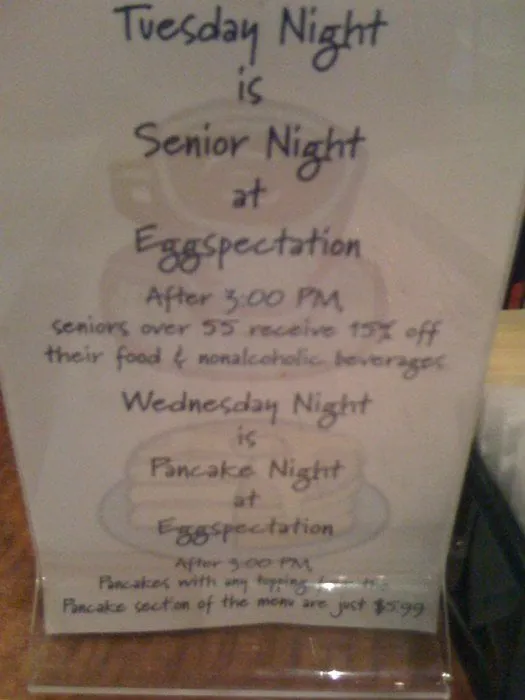 Tuesday Night
is
Senior Night
at
Eggspectation
After 3:00 PM,
seniors over 55 receive 15% off
their food & nonalcoholic beverages
Wednesday Night
is
Pancake Night
at
Eggspectation
After 3:00 PM,
Pancakes with any topping
Pancake section of the menu are just $5.99